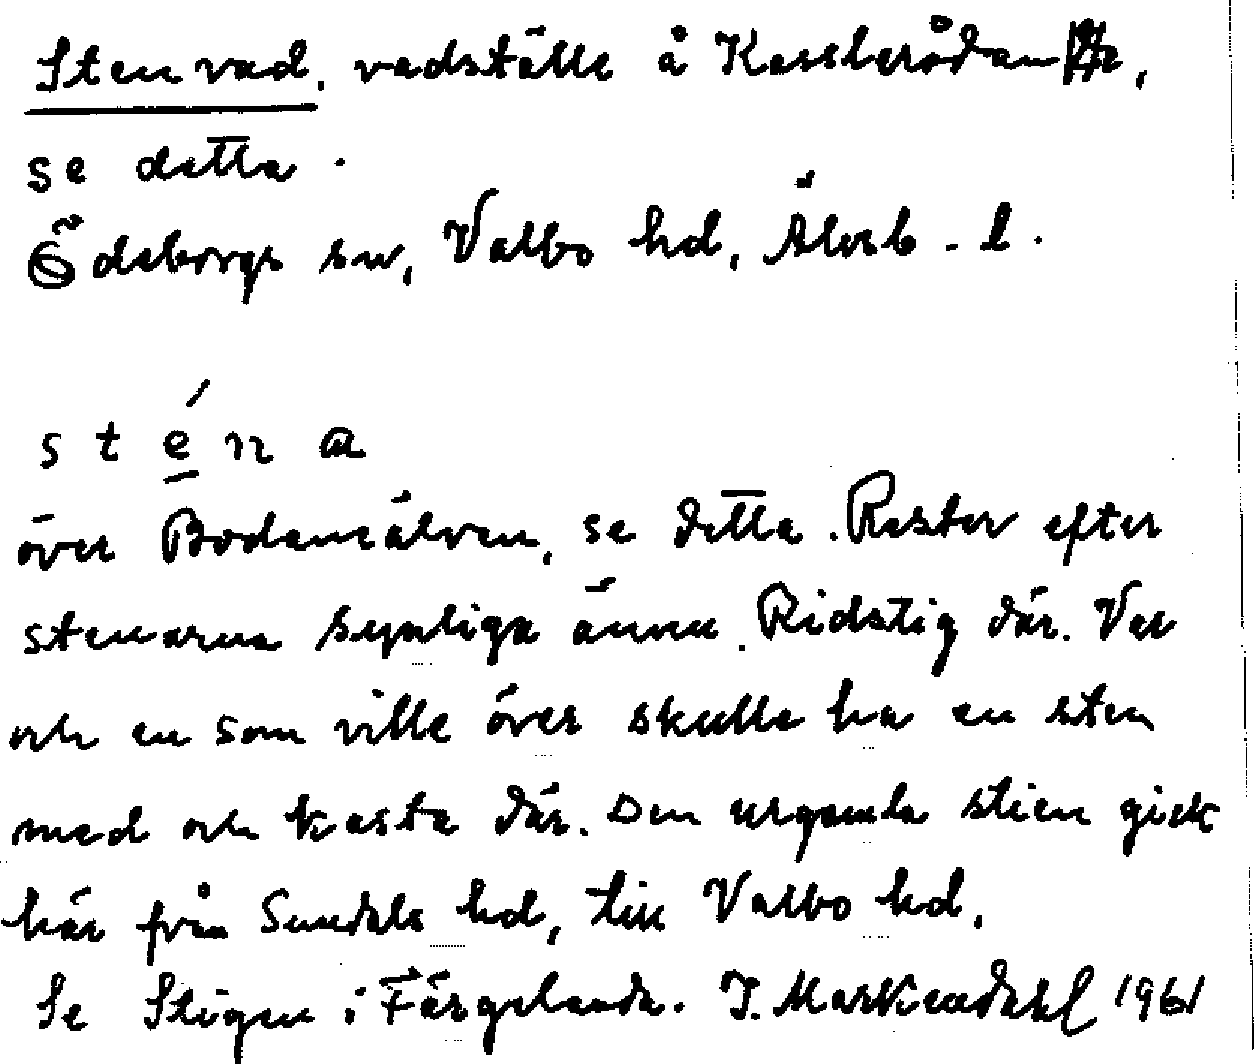 Stenvad, vadställe å Kesslerödam,
se detta.
Ödeborgs sn, Valbo hd, Älvsb. l.
sténa
över Bodaneälven, se detta. Rester efter
stenarna synliga ännu. Ridstig där. Var
och en som ville över skulle ha en sten
med och kasta där. Den urgamla stien gick
här från Sundals hd, till Valbo hd.
Se Stigen i Färgelanda. J. Markendahl 1961